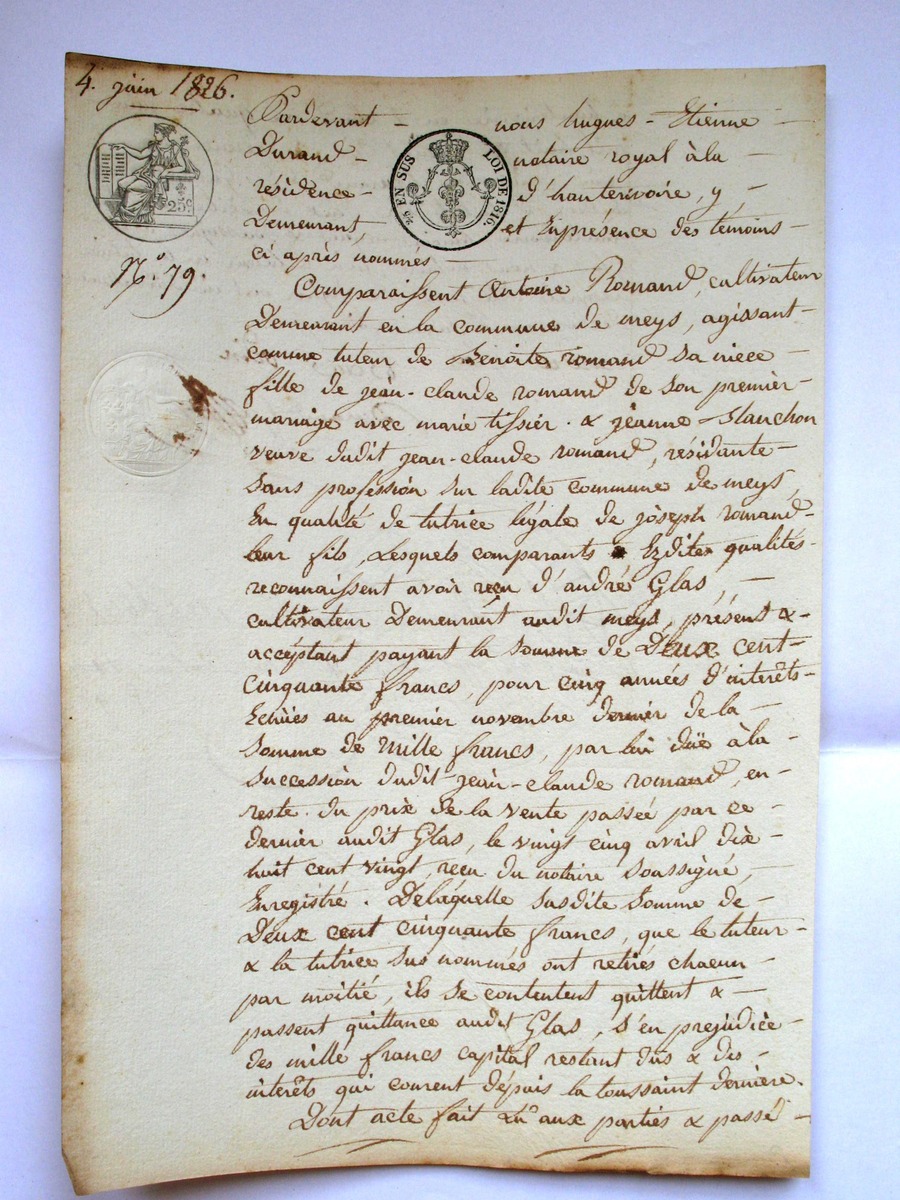 4. juin 1826.
Pardevant - nous hugues - Etienne -
Durand - notaire royal à la -
résidence - d'hauterivoire, y -
Demeurant, et en présence des témoins -
ci après nommés -
25c
25 EN SUS LOI DE 1816.
N.° 79.
Comparaissent Antoine Romand, cultivateur
Demeurant en la commune de meys, agissant -
comme tuteur de Benoite romand sa niece -
fille de jean-claude romand de son premier -
mariage avec marie tissier. & jeanne - Blanchon
veuve dudit jean-claude romand, résidante -
sans profession sur ladite commune de meys,
En qualité de tutrice légale de joseph romand -
leur fils, Lesquels comparants Ezdites qualités -
reconnaissent avoir reçu d'andré Glas, -
cultivateur Demeurant audit meys, présent & -
acceptant payant la somme de Deux cent -
cinquante francs, pour cinq années d'interêts -
Echües au premier novembre dernier de la -
somme de Mille francs, par lui düe à la -
succession dudit jean-claude romand, en -
reste du prix de la vente passée par ce -
dernier audit Glas, le vingt cinq avril dix -
huit cent vingt, reçu du notaire soussigné, -
Enregistré. De laquelle susdite somme de -
Deux cent cinquante francs, que le tuteur -
& la tutrice sus nommés ont retirés chacun -
par moitié, ils se contentent quittent & -
passent quittance audit Glas, s'en prejudice -
des mille francs capital restant dus & des -
interêts qui courent dépuis la toussaint derniere.
Dont acte fait lu aux parties & passé -